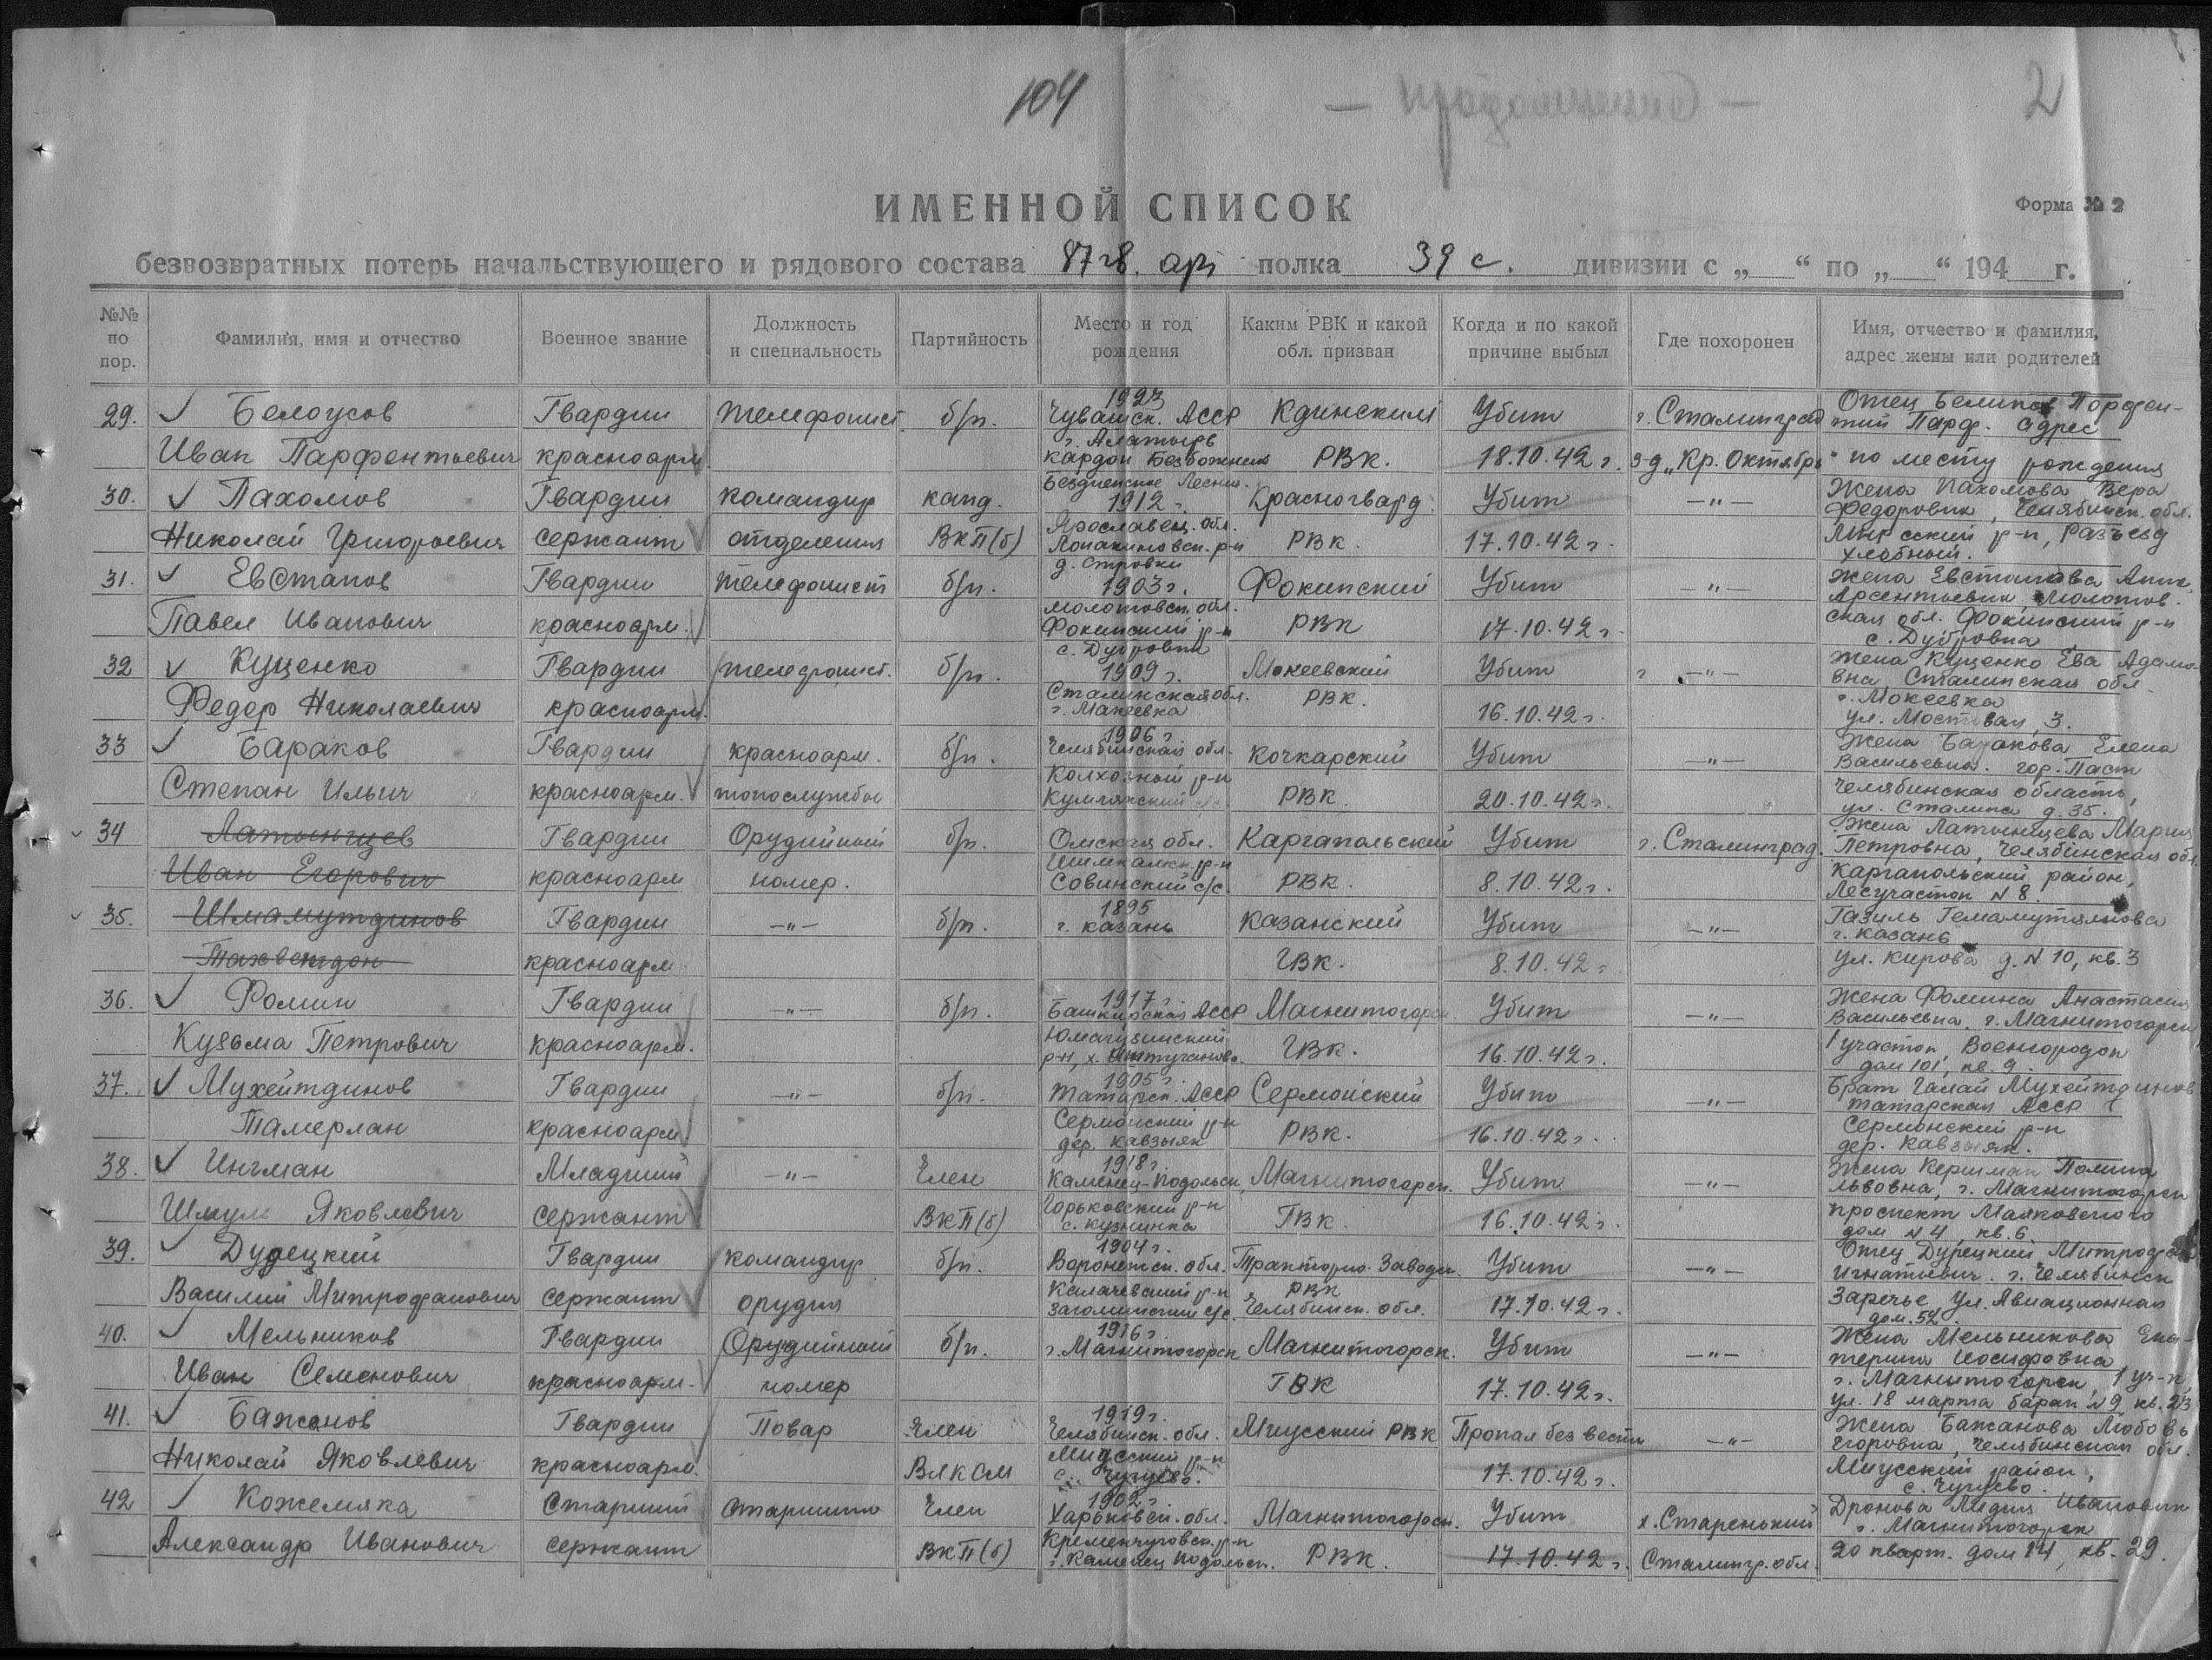 104
— продолжение —
2
ИМЕННОЙ СПИСОК
Форма № 2
безвозвратных потерь начальствующего и рядового состава 87 гв. арт полка 39 с. дивизии с „ “ по „ “ 194 г.
№№ по пор. Фамилия, имя и отчество Военное звание Должность и специальность Партийность Место и год рождения Каким РВК и какой обл. призван Когда и по какой причине выбыл Где похоронен Имя, отчество и фамилия, адрес жены или родителей
29. Белоусов Иван Парфентьевич Гвардии красноарм. телефонист. б/п. 1923 Чувашск. АССР г. Алатырь кардон Безбожник Кдинский РВК. Убит 18.10.42 г. г. Сталинград з-д „Кр. Октябрь“ Отец Парфентий Парф. адрес по месту рождения
30. Пахомов Николай Григорьевич Гвардии сержант командир отделения канд. ВКП(б) 1912 г. Ярославск. обл. р-н д. Островки Красногвард. РВК. Убит 17.10.42 г. —„— Жена Пахомова Вера Федоровна, Челябинск. обл. р-н, разъезд хлебный.
31. Евстапов Павел Иванович Гвардии красноарм. телефонист б/п. 1903 г. Молотовск. обл. Фокинский р-н с. Дубровка Фокинский РВК Убит 17.10.42 г. —„— Жена Арсентьевна, Молотовская обл. Фокинский р-н с. Дубровка
32 Куценко Федор Николаевич Гвардии красноарм. телефонист. б/п. 1909 г. Сталинская обл. г. Макеевка Мокеевский РВК. Убит 16.10.42 г. г. —„— Жена Куценко Ева Адамовна Сталинская обл. г. Мокеевка ул. Мостовая, 3.
33 Бараков Степан Ильич Гвардии красноарм. красноарм. топослужбы б/п. 1906 г. Челябинская обл. Колхозный р-н Кумлякский с/с Кочкарский РВК. Убит 20.10.42 г. —„— Жена Баракова Елена Васильевна. гор. Пласт Челябинская область, ул. Сталина д. 35.
34 Латынцев Иван Егорович Гвардии красноарм Орудийный номер. б/п. Омская обл. р-н Совинский с/с. Каргапольский РВК. Убит 8.10.42 г. г. Сталинград. Жена Мария Петровна, Челябинская обл. Каргапольский район, Лесучасток № 8.
35. Шмамутдинов Гвардии красноарм —„— б/п. 1895 г. Казань Казанский ГВК. Убит 8.10.42 г. —„— г. Казань ул. Кирова д. № 10, кв. 3
36. Фомин Кузьма Петрович Гвардии красноарм. —„— б/п. 1917 г. Башкирская АССР Юмагузинский р-н, х. Магнитогорск. ГВК. Убит 16.10.42 г. —„— Жена Фомина Анастасия Васильевна. г. Магнитогорск 1 участок, Военгородок дом 101, кв. 9.
37. Мухейтдинов Тамерлан Гвардии красноарм. —„— б/п. 1905 г. Татарск. АССР Сермонский р-н дер. Кавзияк Сермонский РВК. Убит 16.10.42 г. —„— Брат Галай Мухейтдинов Татарская АССР Сермонский р-н дер. Кавзияк.
38. Ингман Шмуль Яковлевич Младший сержант —„— Член ВКП(б) 1918 г. Каменец-Подольск. р-н Магнитогорск. ГВК. Убит 16.10.42 г. —„— Жена Полина Львовна, г. Магнитогорск проспект Маяковского дом № 4, кв. 6
39. Дудецкий Василий Митрофанович Гвардии сержант командир орудия б/п. 1904 г. Воронежск. обл. Калачевский р-н Тракторо-Заводск. РВК Челябинск. обл. Убит 17.10.42 г. —„— Отец Игнатьевич. г. Челябинск Заречье, ул. Авиационная дом. 52.
40. Мельников Иван Семенович Гвардии красноарм. Орудийный номер б/п. 1916 г. г. Магнитогорск Магнитогорск. ГВК Убит 17.10.42 г. —„— Жена Мельникова Екатерина Иосифовна г. Магнитогорск 1 уч-к, ул. 18 марта барак № 9 кв. 23
41. Бажанов Николай Яковлевич Гвардии красноарм. Повар Член ВЛКСМ 1919 г. Челябинск. обл. Миусский РВК Пропал без вести 17.10.42 г. —„— Жена Бажанова Любовь Егоровна, Челябинская обл. Миусский район,
42 Кожемяка Александр Иванович Старший сержант старшина Член ВКП(б) 1902 г. Харьковск. обл. Кременчуговск. р-н г. Каменец Подольск. Магнитогорск. РВК. Убит 17.10.42 г. х. Старенький Сталингр. обл. Дронова Лидия Ивановна г. Магнитогорск 20 кварт. дом 14, кв. 29.